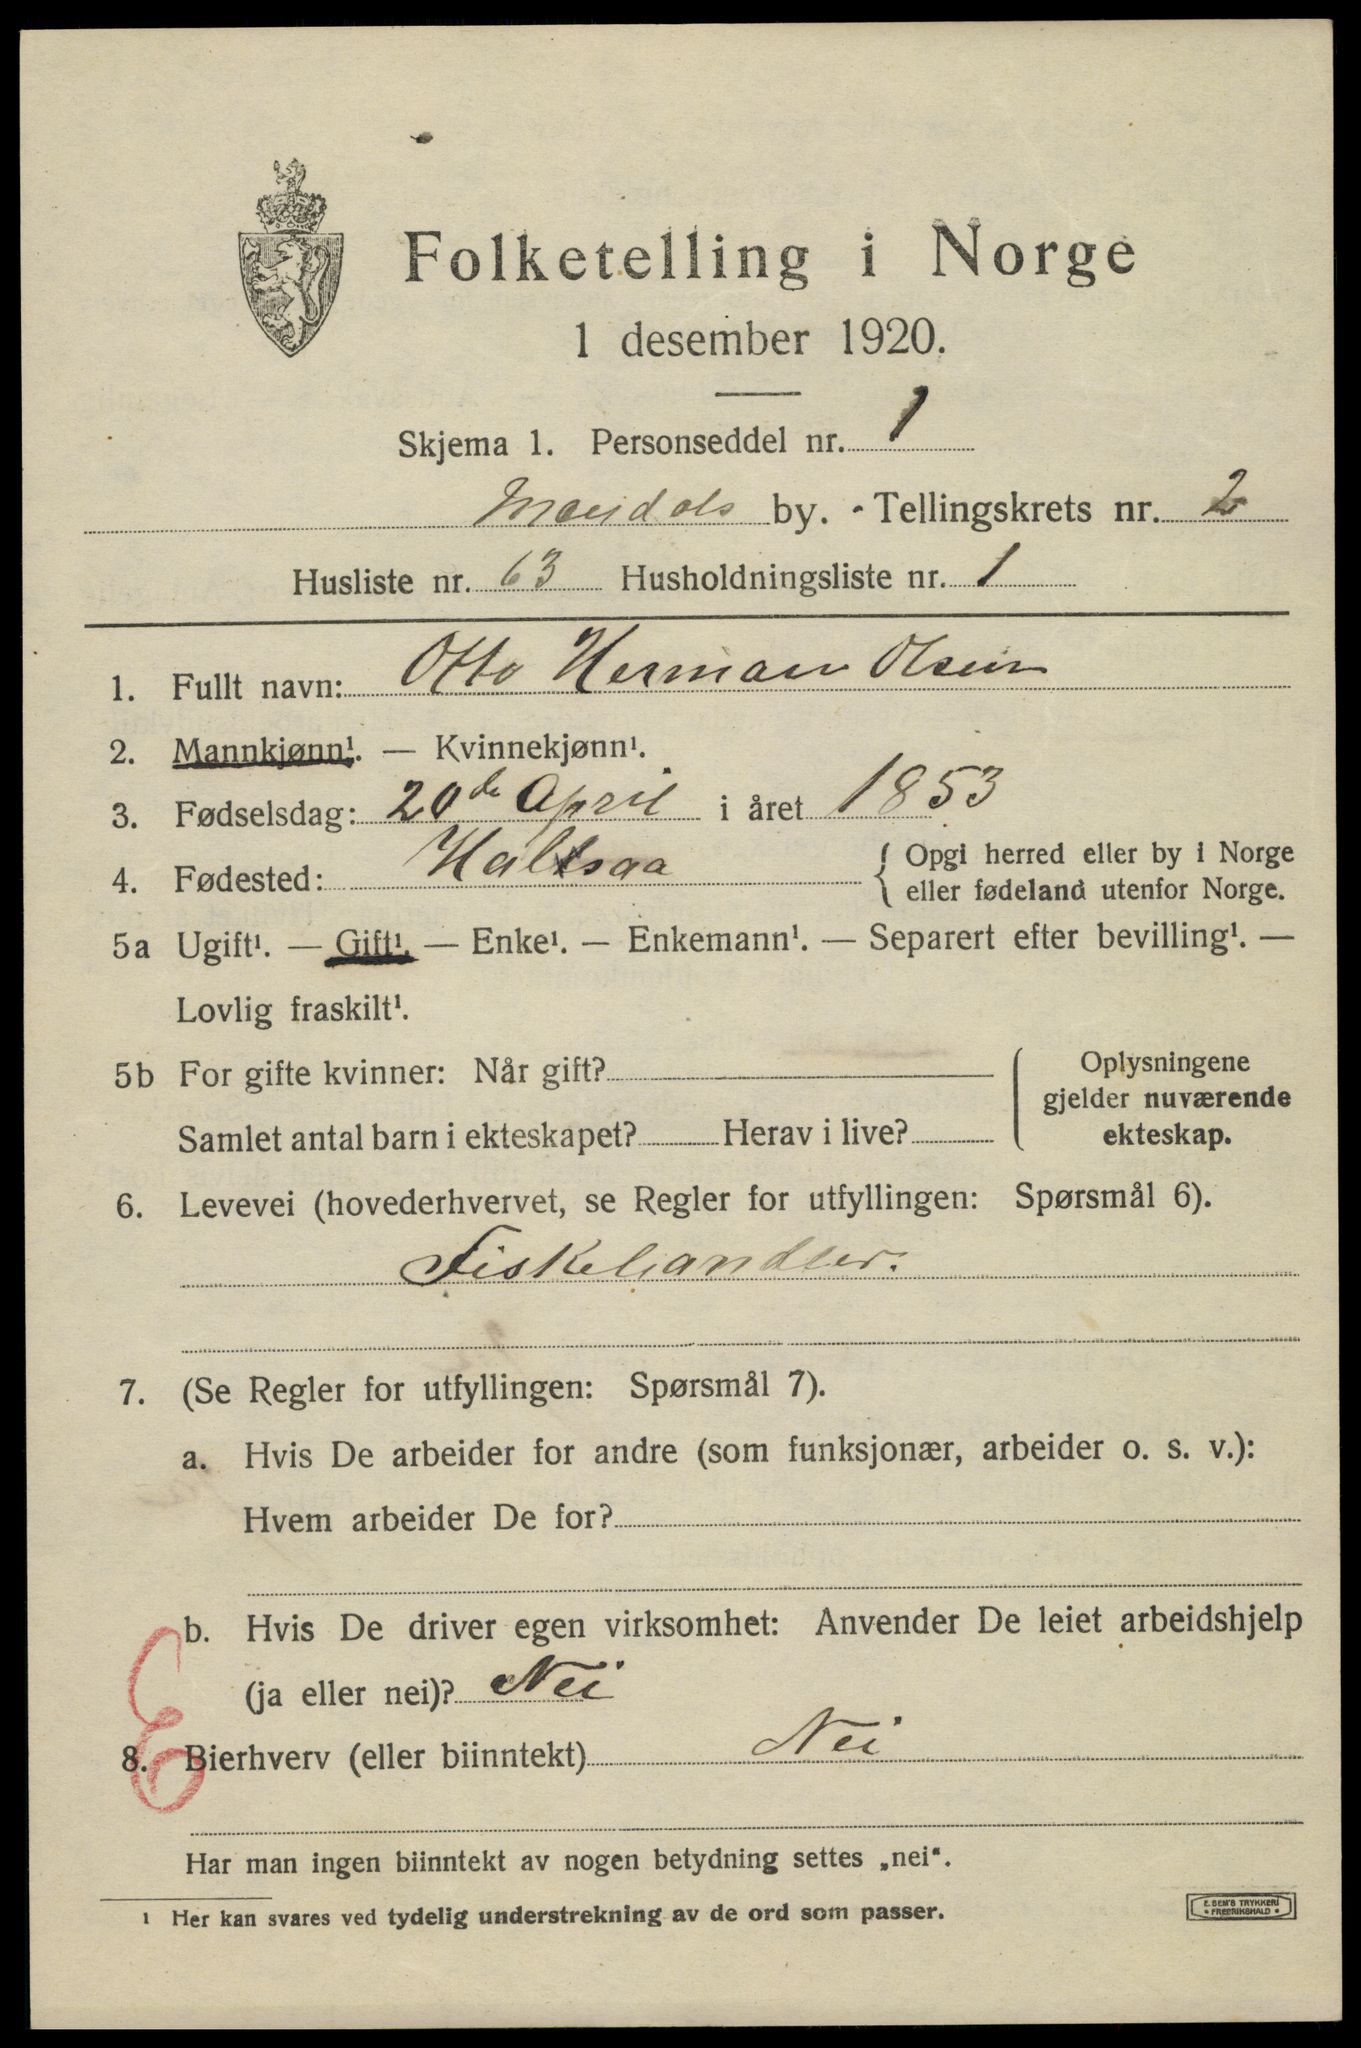 Folketelling i Norge
1 desember 1920.
Skjema 1. Personseddel nr. 1
Mandals by. Tellingskrets nr. 2
Husliste nr. 63 Husholdningsliste nr. 1
1. Fullt navn: Otto Herman Olsen
2. Mannkjønn¹. — Kvinnekjønn¹.
3. Fødselsdag: 20de April i året 1853
4. Fødested: Halsaa { Opgi herred eller by i Norge
eller fødeland utenfor Norge.
5a Ugift¹. — Gift¹. — Enke¹. — Enkemann¹. — Separert efter bevilling¹. —
Lovlig fraskilt¹.
5b For gifte kvinner: Når gift?
Samlet antal barn i ekteskapet? Herav i live?
Oplysningene
gjelder nuværende
ekteskap.
6. Levevei (hovederhvervet, se Regler for utfyllingen: Spørsmål 6).
Fiskehandler.
7. (Se Regler for utfyllingen: Spørsmål 7).
a. Hvis De arbeider for andre (som funksjonær, arbeider o. s. v.):
Hvem arbeider De for?
b. Hvis De driver egen virksomhet: Anvender De leiet arbeidshjelp
(ja eller nei)? Nei
E
8. Bierhverv (eller biinntekt) Nei
Har man ingen biinntekt av nogen betydning settes „nei“.
¹ Her kan svares ved tydelig understrekning av de ord som passer.
E. SEM'S TRYKKERI
• FREDRIKSHALD •